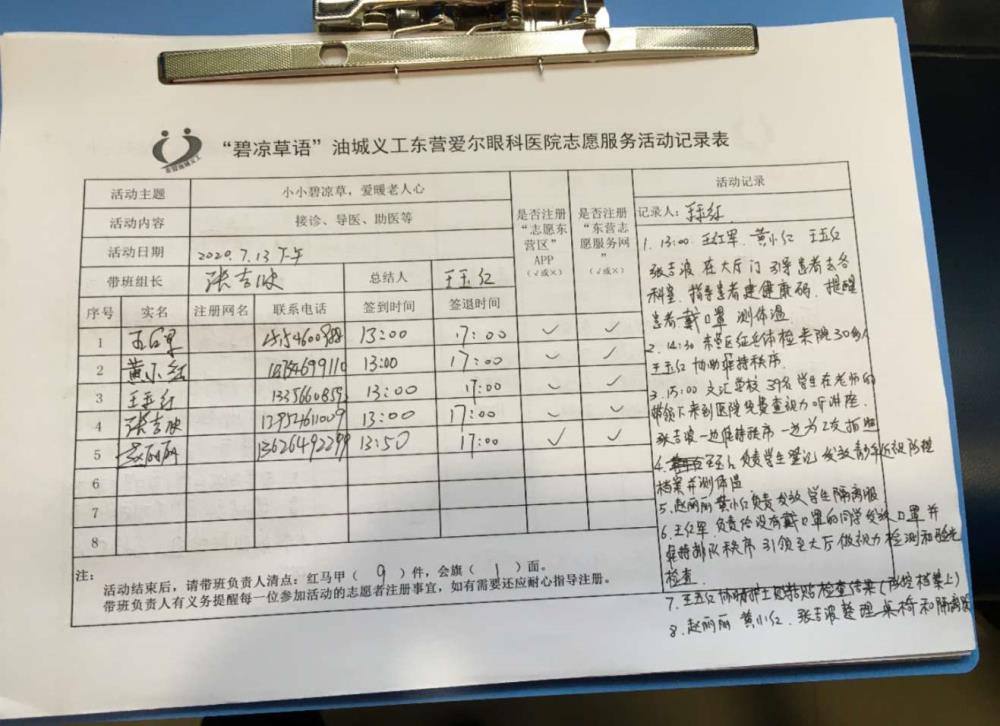 “碧凉草语”油城义工东营爱尔眼科医院志愿服务活动记录表
活动主题 小小碧凉草，爱暖老人心
活动内容 接诊、导医、助医等
活动日期 2020.7.13下午
带班组长 张吉波 总结人 王玉红
是否注册“志愿东营区”APP（√或×）
是否注册“东营志愿服务网”（√或×）
序号 实名 注册网名 联系电话 签到时间 签退时间
1 13:00 17:00 ✓ ✓
2 黄小红 13:00 17:00 ✓ ✓
3 王玉红 13:00 17:00 ✓ ✓
4 张吉波 13:00 17:00 ✓ ✓
5 赵丽丽 13626492299 13:50 17:00 ✓ ✓
6
7
8
注：
活动结束后，请带班负责人清点：红马甲（ 9 ）件，会旗（ 1 ）面。
带班负责人有义务提醒每一位参加活动的志愿者注册事宜，如有需要还应耐心指导注册。
活动记录
记录人：王玉红
1. 13:00 王红军 黄小红 王玉红
张吉波 在大厅门引导患者去各
科室.指导患者建健康码.提醒
患者戴口罩 测体温
2. 14:30 征兵体检来院30多人
王玉红协助维持秩序.
3. 15:00 文汇学校 39名学生在老师的
带领下来到医院免费查视力听讲座.
张吉波一边维持秩序一边为2次拍照
4. 负责学生登记 发放青少年近视防控
档案并测体温
5. 赵丽丽黄小红负责发放学生隔离服
6. 王红军.负责给没有戴口罩的同学发放口罩并
维持排队秩序 引领至大厅做视力检测和验光
检查.
7. 王玉红协助护士粘贴检查结果(档案上)
8. 赵丽丽 黄小红.张吉波整理桌椅和隔离服